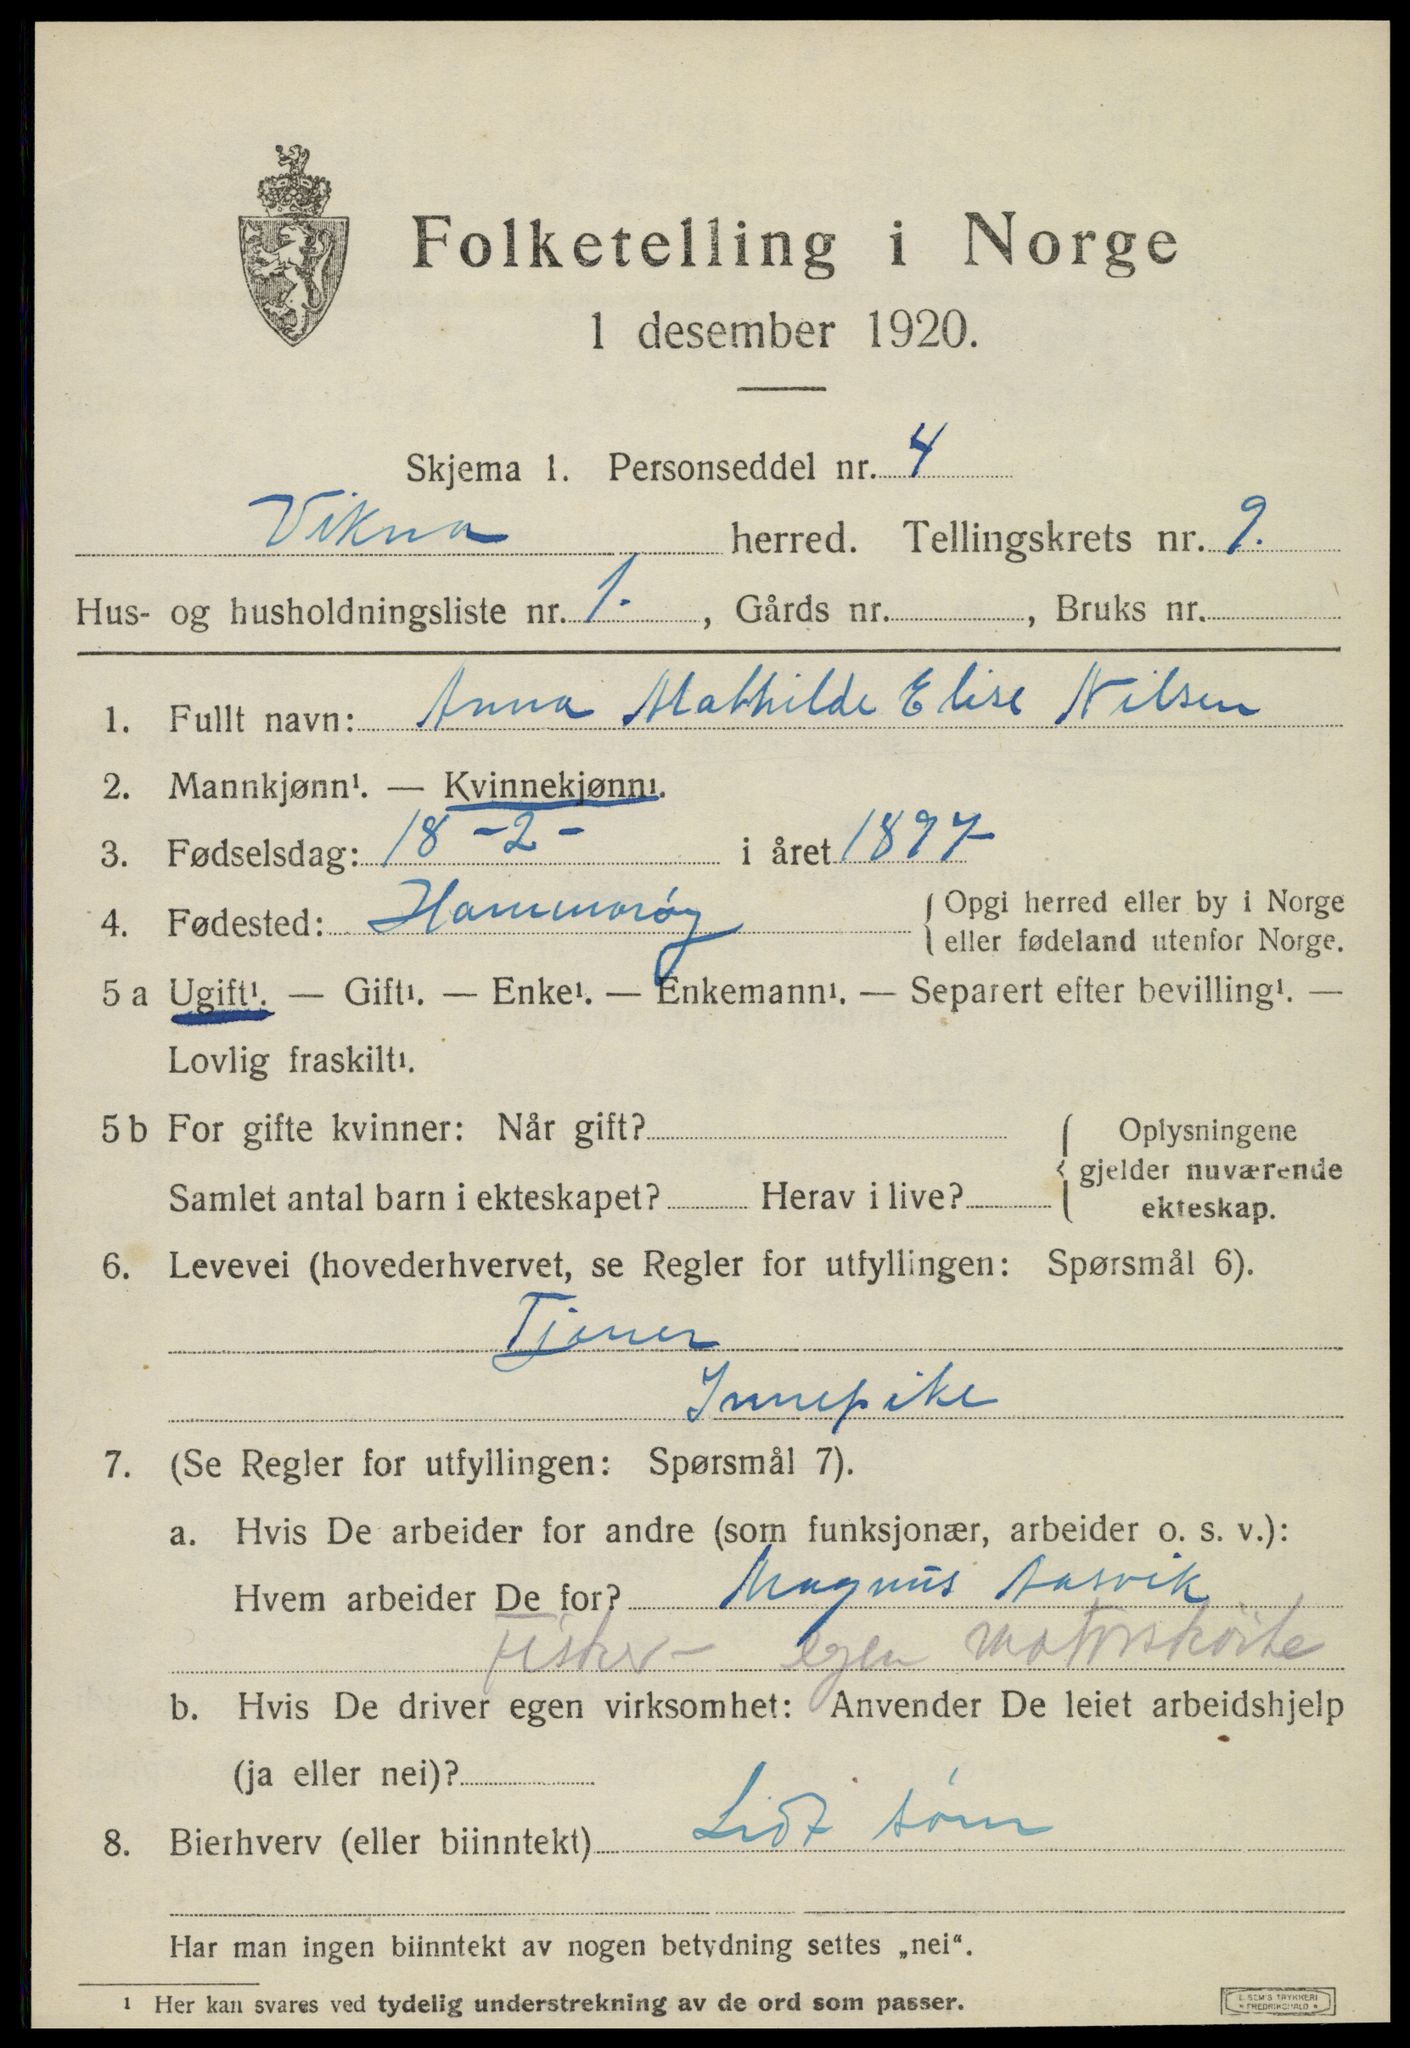 Folketelling i Norge
1 desember 1920.
Skjema 1. Personseddel nr. 4
Vikna herred. Tellingskrets nr. 9.
Hus- og husholdningsliste nr. 1. , Gårds nr. , Bruks nr.
1. Fullt navn: Anna Mathilde Elise Nilsen
2. Mannkjønn¹. — Kvinnekjønn¹.
3. Fødselsdag: 18 - 2 - i året 1897
4. Fødested: Hammarøy { Opgi herred eller by i Norge
eller fødeland utenfor Norge.
5 a Ugift¹. — Gift¹. — Enke¹. — Enkemann¹. — Separert efter bevilling¹. —
Lovlig fraskilt¹.
5 b For gifte kvinner: Når gift? { Oplysningene
gjelder nuværende
Samlet antal barn i ekteskapet? Herav i live? ekteskap.
6. Levevei (hovederhvervet, se Regler for utfyllingen: Spørsmål 6).
Tjener
Innepike
7. (Se Regler for utfyllingen: Spørsmål 7).
a. Hvis De arbeider for andre (som funksjonær, arbeider o. s. v.):
Hvem arbeider De for? Magnus Aasvik
fisker - egen motorskøite
b. Hvis De driver egen virksomhet: Anvender De leiet arbeidshjelp
(ja eller nei)?
8. Bierhverv (eller biinntekt) Lidt søm
Har man ingen biinntekt av nogen betydning settes „nei“.
¹ Her kan svares ved tydelig understrekning av de ord som passer.
E. SEM'S TRYKKERI
* FREDRIKSHALD *